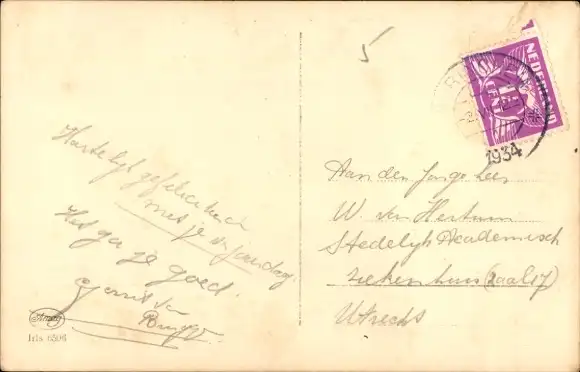 5
NEDERLAND
1934
Hartelijk gefeliciteerd
met je verjaardag.
Het ga je goed.
Gerrit
Aan den Jonge Heer
W. van Hertum
Stedelijk Academisch
ziekenhuis (zaal 17)
Utrecht
Amag
Irla 6506